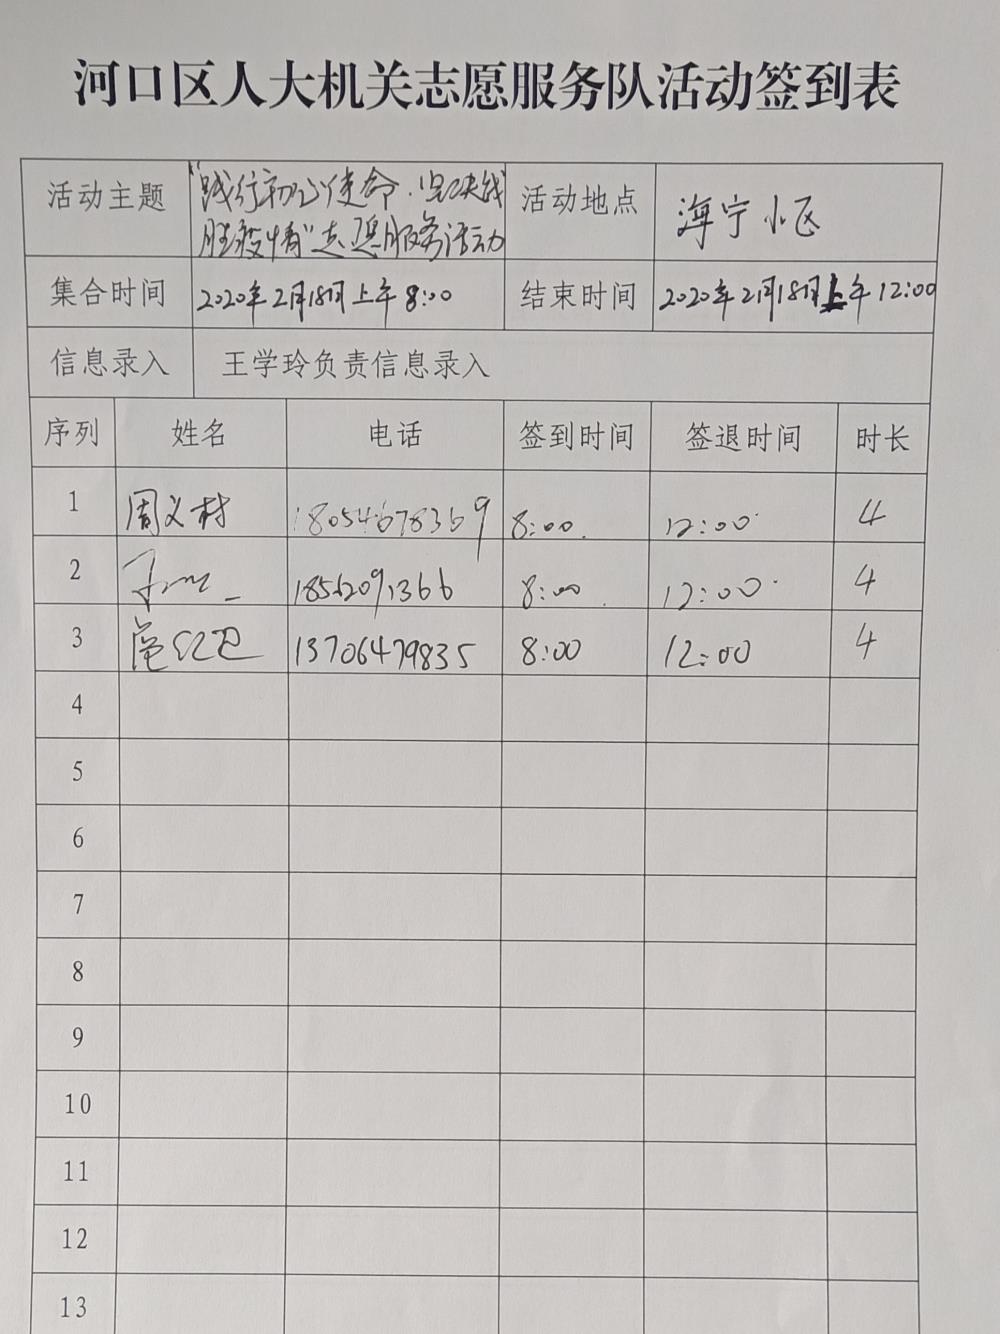 河口区人大机关志愿服务队活动签到表
活动主题 "践行初心使命.坚决战 活动地点 海宁小区
胜疫情"志愿服务活动
集合时间 2020年2月18日上午8:00 结束时间 2020年2月18日上午12:00
信息录入 王学玲负责信息录入
序列 姓名 电话 签到时间 签退时间 时长
1 周义村 18054678369 8:00 12:00 4
2 18562091366 8:00 12:00 4
3 13706479835 8:00 12:00 4
4
5
6
7
8
9
10
11
12
13